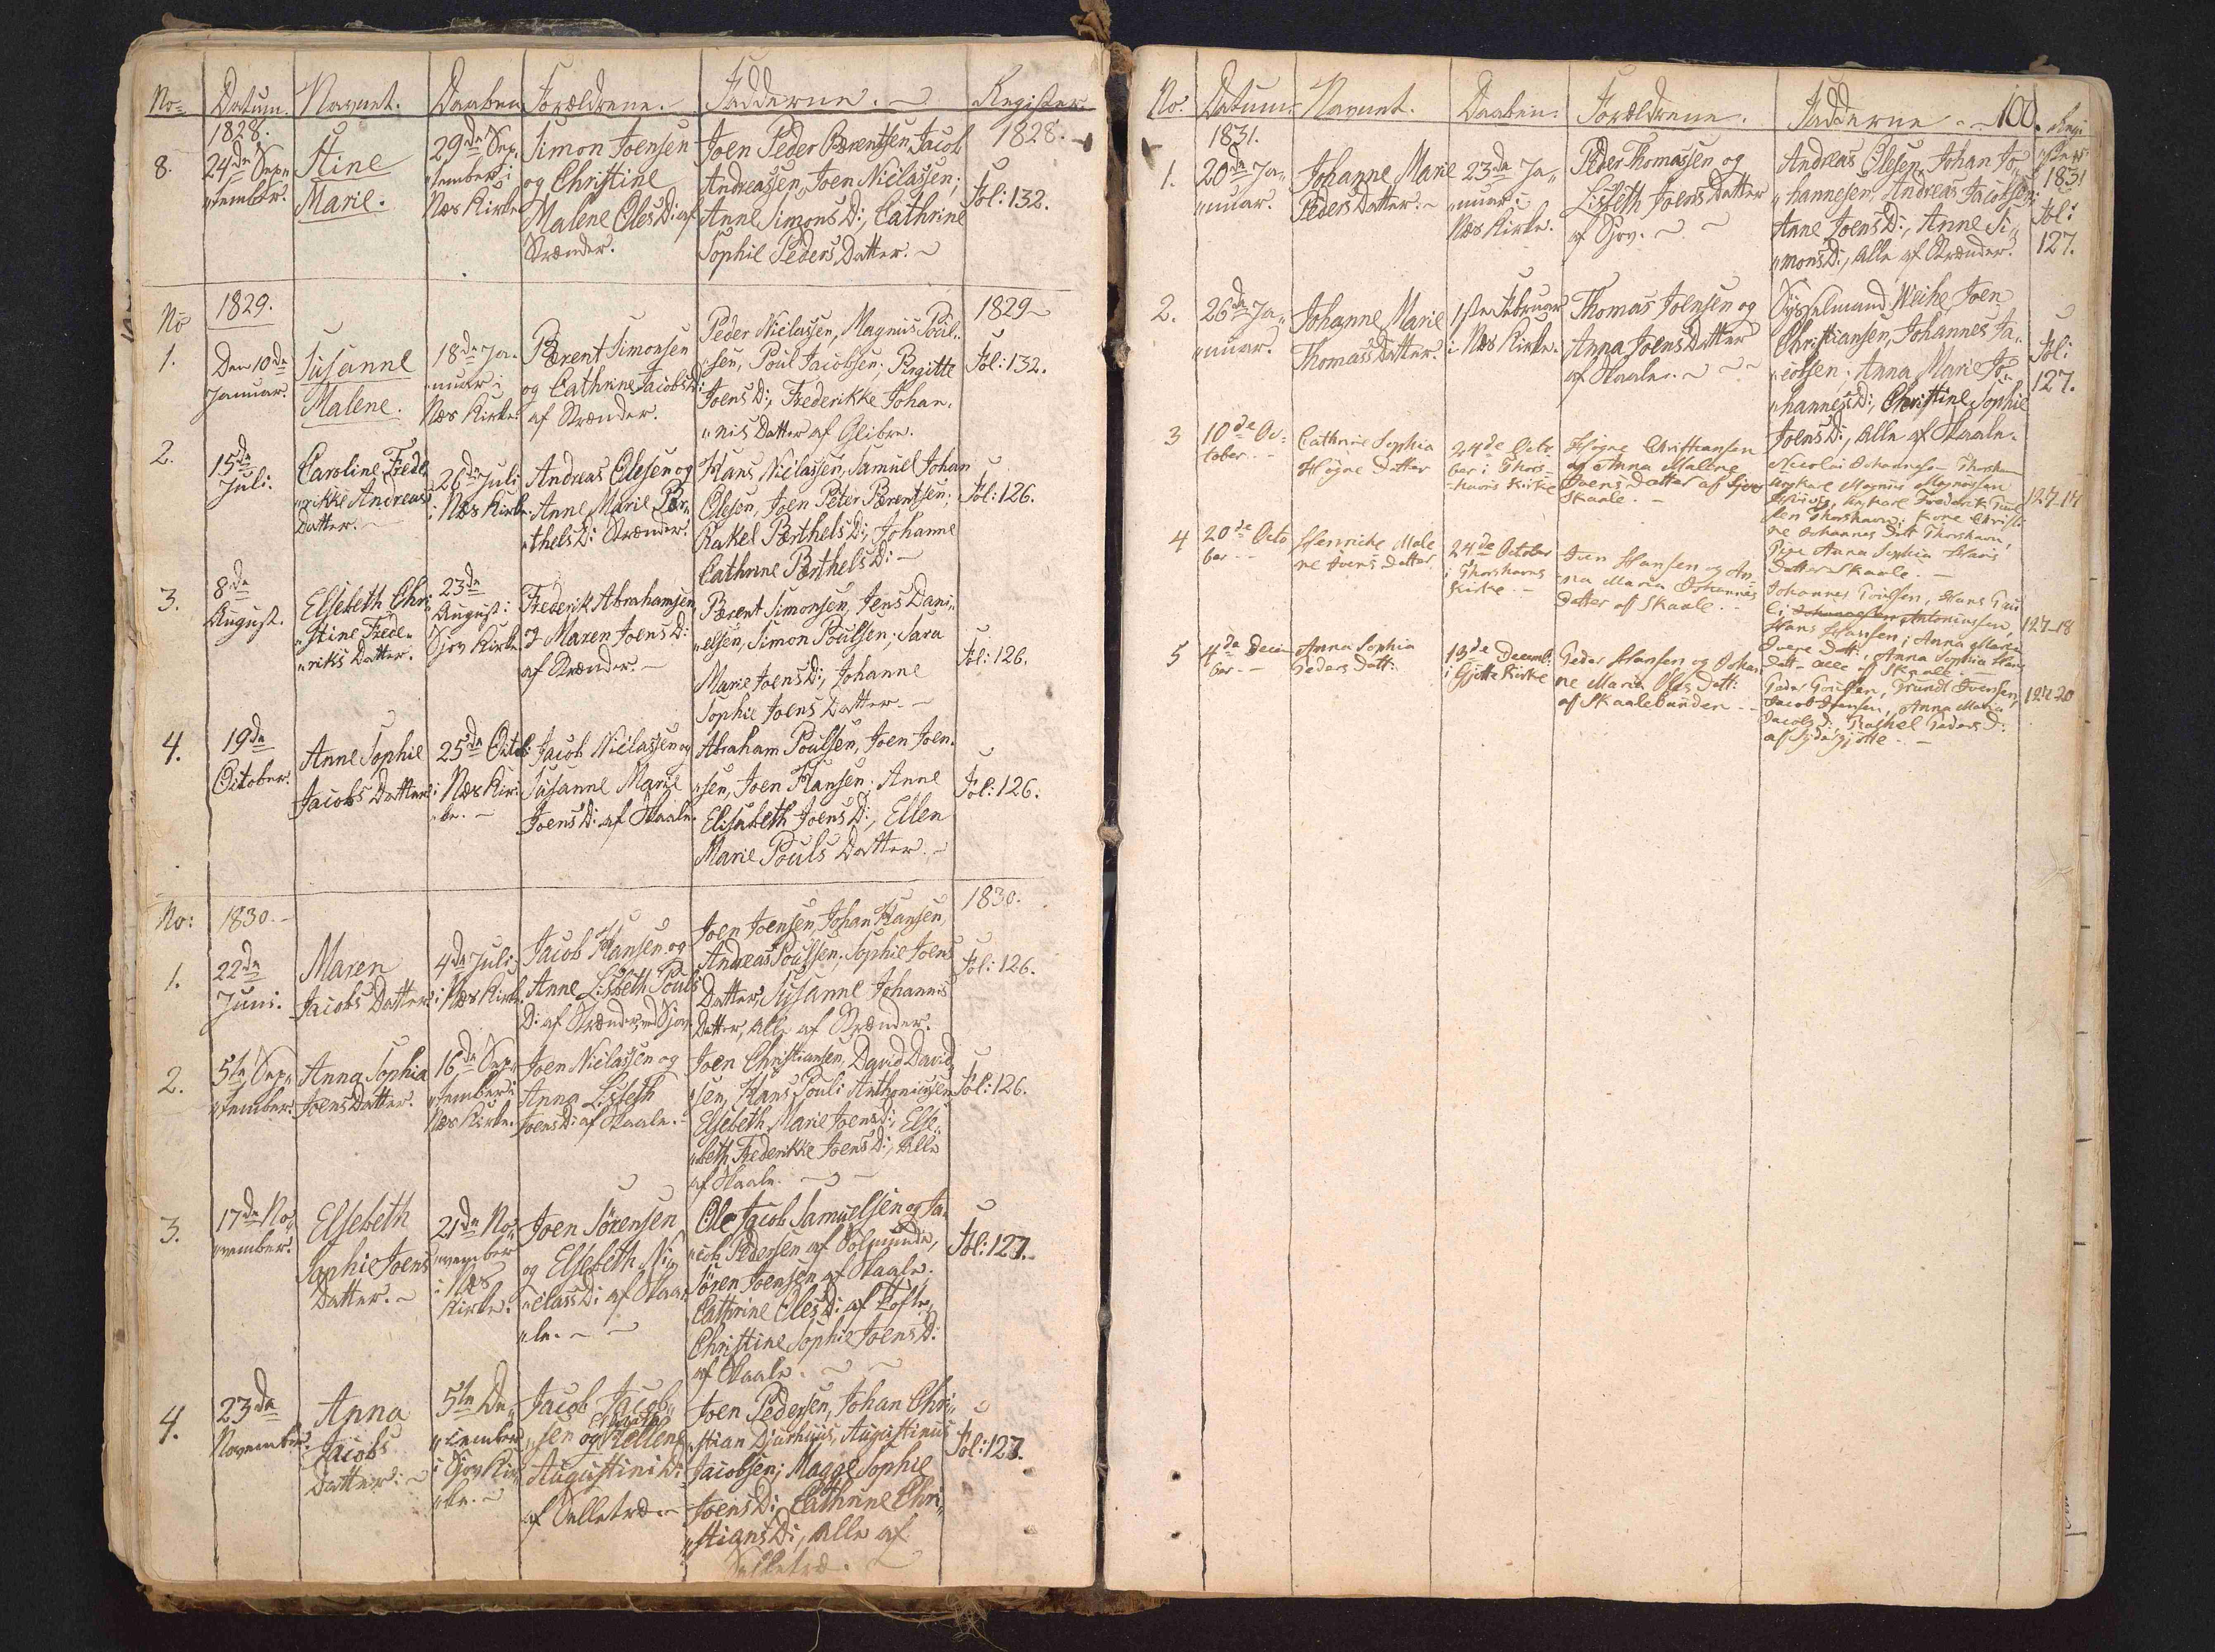 No= Datum. Navnet. Daaben Forældrene. Fadderne. Register.
1828. 1828.
8. 24de Sep= tember.
Stine
Marie.
29de Sep=
tember i
Næs Kirke
Simon Joensen
og Christine
Malene OlesD: af
Strænder.
Joen Peder Bærentsen, Jacob
Andreasen, Joen Niclassen;
Anne SimonsD:, Cathrine
Sophie Peders Datter.
Fol: 132.
No 1829. 1829
1. Den 10de
Januar.
Susanne
Malene.
18de Ja=
nuar i
Næs Kirke
Bærent Simonsen
og Cathrine JacobsD:
af Strænder.
Peder Niclassen, Magnus Poul=
sen, Poul Jacobsen; Birgitte
JoensD:, Frederikke Johan=
nis Datter af Glibre.
Fol: 132.
2. 15de
Juli.
Caroline Fede
rikke Andreas
Datter.
26de Juli
i Næs Kirke
Andreas Olesen og
Anne Marie Bær=
thelsD: Strænder.
Hans Niclassen, Samuel Johan
Olesen, Joen Peter Bærentsen;
Rakel BærthelsD:, Johanne
Cathrine BærthelsD:
Fol: 126.
3. 8de
August.
Elsebeth Chri=
stine Frede=
riks Datter.
23de
August i
Sjov Kirke
Frederik Abrahamsen
& Maren JoensD:
af Strænder.
Bærent Simonsen, Jens Dani=
elsen, Simon Poulsen; Sara
Marie JoensD:, Johanne
Sophie Joens Datter.
Fol: 126.
4. 19de
October.
Anne Sophie
Jacobs Datter
25de Octob:
i Næs Kir=
ke.
Jacob Niclassen og
Susanne Marie
JoensD: af Skaale.
Abraham Poulsen, Joen Joen=
sen, Joen Hansen; Anne
Elisabeth JoensD:, Ellen
Marie Pouls Datter.
Fol: 126.
No: 1830. 1830.
1. 22de
Juni.
Maren
Jacobs Datter
4de Juli
i Næs Kirke.
Jacob Hansen og
Anne Lisbeth Pouls
D: af Strænder, ved Sjov
Joen Joensen, Johan Hansen,
Andreas Poulsen; Sophie Joens
Datter, Susanne Johannis
Datter, alle af Strænder.
Fol: 126.
2. 5te Sep=
tember.
Anna Sophia
Joens Datter.
16de Sep=
tember i
Næs Kirke.
Joen Niclassen og
Anna Lisbeth
JoensD: af Skaale.
Joen Christiansen, David David
sen, Hans Pouli Anthoniussen
Elsebeth Marie JoensD:, Else=
beth Frederikke JoensD:, alle
af Skaale.
Fol: 126.
3. 17de No=
vember.
Elsebeth
Sophie Joens
Datter.
21de No=
vember
i Næs
Kirke.
Joen Sörensen
og Elsebeth Ni=
classD: af Skaa=
le.
Ole Jacob Samuelsen og Ja=
cob Pedersen af Solmunde,
Sören Joensen af Skaale;
Cathrine OlesD: af Tofte,
Christine Sophie JoensD:
af Skaale.
Fol: 127.
4. 23de
November.
Anna
Jacobs
Datter.
5te De=
cember
i Sjov Kir=
ke.
Jacob Jacob=
sen og Hellene
Augustini D:
af Selletræ.
Joen Pedersen, Johan Chri=
stian Djurhuus, Augustinus
Jacobsen; Magge Sophie
JoensD:, Cathrine Chri=
stiansD:, alle af
Selletræ.
Fol: 127.
No. Datum. Navnet. Daaben. Forældrene. Fadderne. 100. Regi
ster
1831. 1831
1. 20de Ja=
nuar.
Johanne Marie
Peders Datter.
23de Ja=
nuar i
Næs Kirke.
Peder Thomassen og
Lisbeth Joens Datter
af Sjov.
Andreas Olesen, Johan Jo=
hannesen, Andreas Jacobsen;
Anne JoensD:, Anne Si=
monsD:, alle af Strænder.
Fol:
127.
2. 26de Ja=
nuar.
Johanne Marie
Thomas Datter.
1ste Februar
i Næs Kirke.
Thomas Joensen og
Anna Joens Datter
af Skaale.
Sysselmand Weihe, Joen
Christiansen, Johannes Ja=
cobsen; Anna Marie Jo=
hannesD:, Christine Sophie
JoensD:, alle af Skaale.
Fol:
127.
3 10de Oc=
tober.
Cathrine Sophia
Högne Datter
24de Octo
ber i Thors=
havns Kirke
Högne Christiansen
og Anna Malene
Joens Datter af
Skaale.
Nicolai Johannesen Thorshavn
Magnus Magnussen
Frederik Poul
sen Thorshavn; Kone Christi
ne Johannes Datt Thorshavn,
Pige Anna Sophia Hans
Datter Skaale.
127-17
4 20de Octo
ber
Henriche Male
ne Joens Datter
24de October
i Thorshavns
Kirke.
Joen Hansen og An
na Maria Johannes
Datter af Skaale.
Johannes Poulsen, Hans Pou
li Johannesen Antoniussen,
Hans Hansen; Anna Maria
Joens Datt:, Anna Sophia Hans
Datt- alle af Skaale.
127-18
5 4de Decem
ber.
Anna Sophia
Peders Datt:
13de Decemb:
i Gjötte Kirke
Peder Hansen og Johan
ne Maria Oles Datt:
af Skaalebunden
Peder Poulsen, Joensen,
Jacob Joensen, Anna Maria
Jacobs D: Rachel Peders D:
af Sydregjötte.
127 20